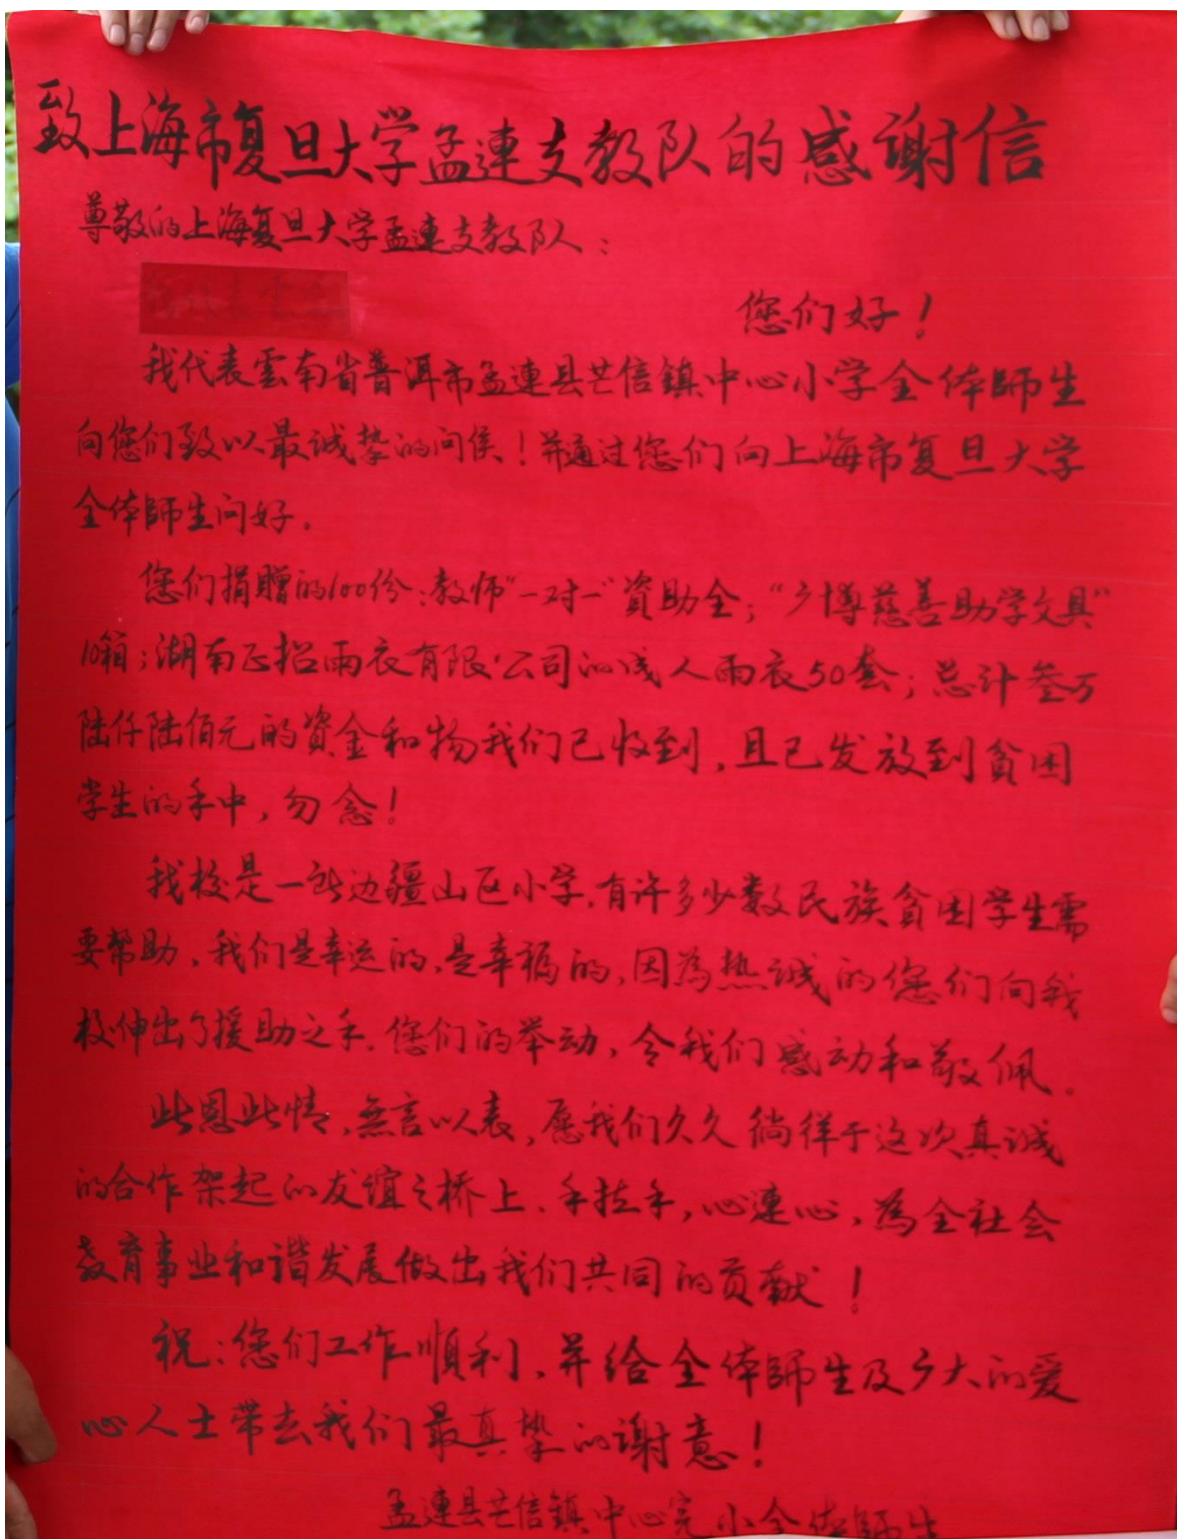 致上海市复旦大学孟連支教队的感謝信
尊敬的上海复旦大学孟連支教队：
您们好！
我代表雲南省普洱市孟連县芒信鎮中心小学全体師生
向您们致以最诚挚的问侯！并通过您们向上海市复旦大学
全体師生问好。
您们捐贈的100份：教师“一对一”資助金；“广博慈善助学文具”
10箱；湖南正招雨衣有限公司的成人雨衣50套；总计叁万
陆仟陆佰元的資金和物我们已收到，且已发放到貧困
学生的手中，勿念！
我校是一所边疆山区小学，有许多少数民族貧困学生需
要帮助，我们是幸运的，是幸福的，因為热诚的您们向我
校伸出了援助之手。您们的举动，令我们感动和敬佩。
此恩此情，無言以表，愿我们久久徜徉于这次真诚
的合作架起的友谊之桥上、手拉手，心連心，為全社会
教育事业和谐发展做出我们共同的贡献！
祝：您们工作順利，并给全体師生及广大的爱
心人士带去我们最真挚的谢意！
孟連县芒信鎮中心完小全体師生